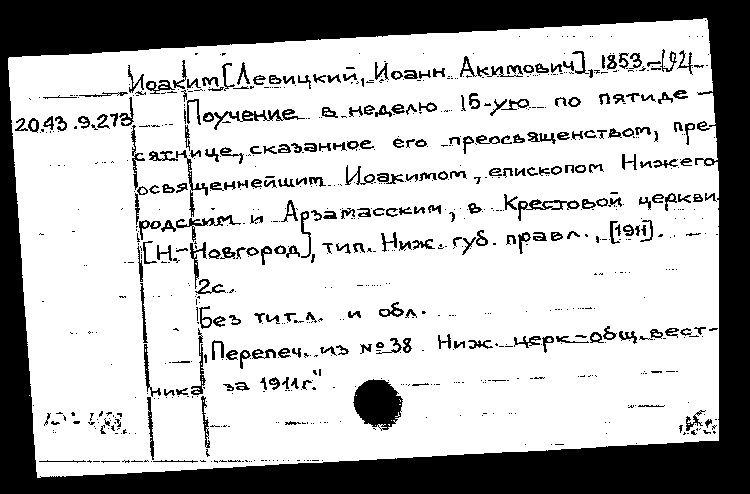 Иоаким [Левицкий, Иоанн Акимович], 1853-1921
20.43.9.273 Поучение в неделю 15-ую по пятиде-
сятнице, сказанное его преосвященством, пре-
освященнейшим Иоакимом, епископом Нижего
родским и Арзамасским, в Крестовой церкви.
[Н.-Новгород], тип. Ниж. губ. правл., [1911].
2с.
Без тит.л. и обл.
"Перепеч. из №38 Ниж. церк-общ. вест-
ника за 1911г."